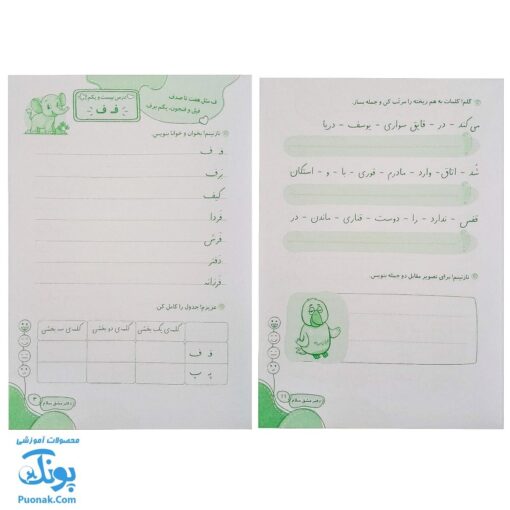 درس بیست و یکم
فـ ف
ف مثل هفت تا صدف
فیل و فنجون، یکم برف
نازنینم! بخوان و خوانا بنویس.
فـ ف
برف
کیف
فردا
فرش
دفتر
فرزانه
عزیزم! جدول را کامل کن
کلمه‌ی یک بخشی
کلمه‌ی دو بخشی
کلمه‌ی سه بخشی
فـ ف
پـ پ
دفتر مشق سلام
۳
گلم! کلمات به هم ریخته را مرتّب کن و جمله بساز.
می‌کند - در - قایق سواری - یوسف - دریا
شد - اتاق - وارد - مادرم - قوری - با - و - استکان
قفس - ندارد - را - دوست - قناری - ماندن - در
نازنینم! برای تصویر مقابل دو جمله بنویس.
دفتر مشق سلام
محصولات آموزشی
پونک
Puonak.Com